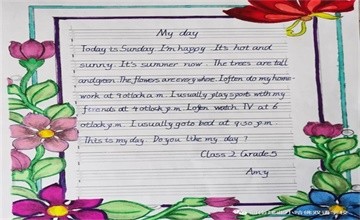 My day
Today is Sunday. I'm happy. It's hot and
sunny. It's summer now. The trees are tall
and green. The flowers are everywhere. I often do my home-
work at 9 o'clock a.m. I usually play sports with my
friends at 4 o'clock p.m. I often watch TV at 6
o'clock p.m. I usually go to bed at 9:30 p.m.
This is my day. Do you like my day?
Class 2 Grade 5
Amy